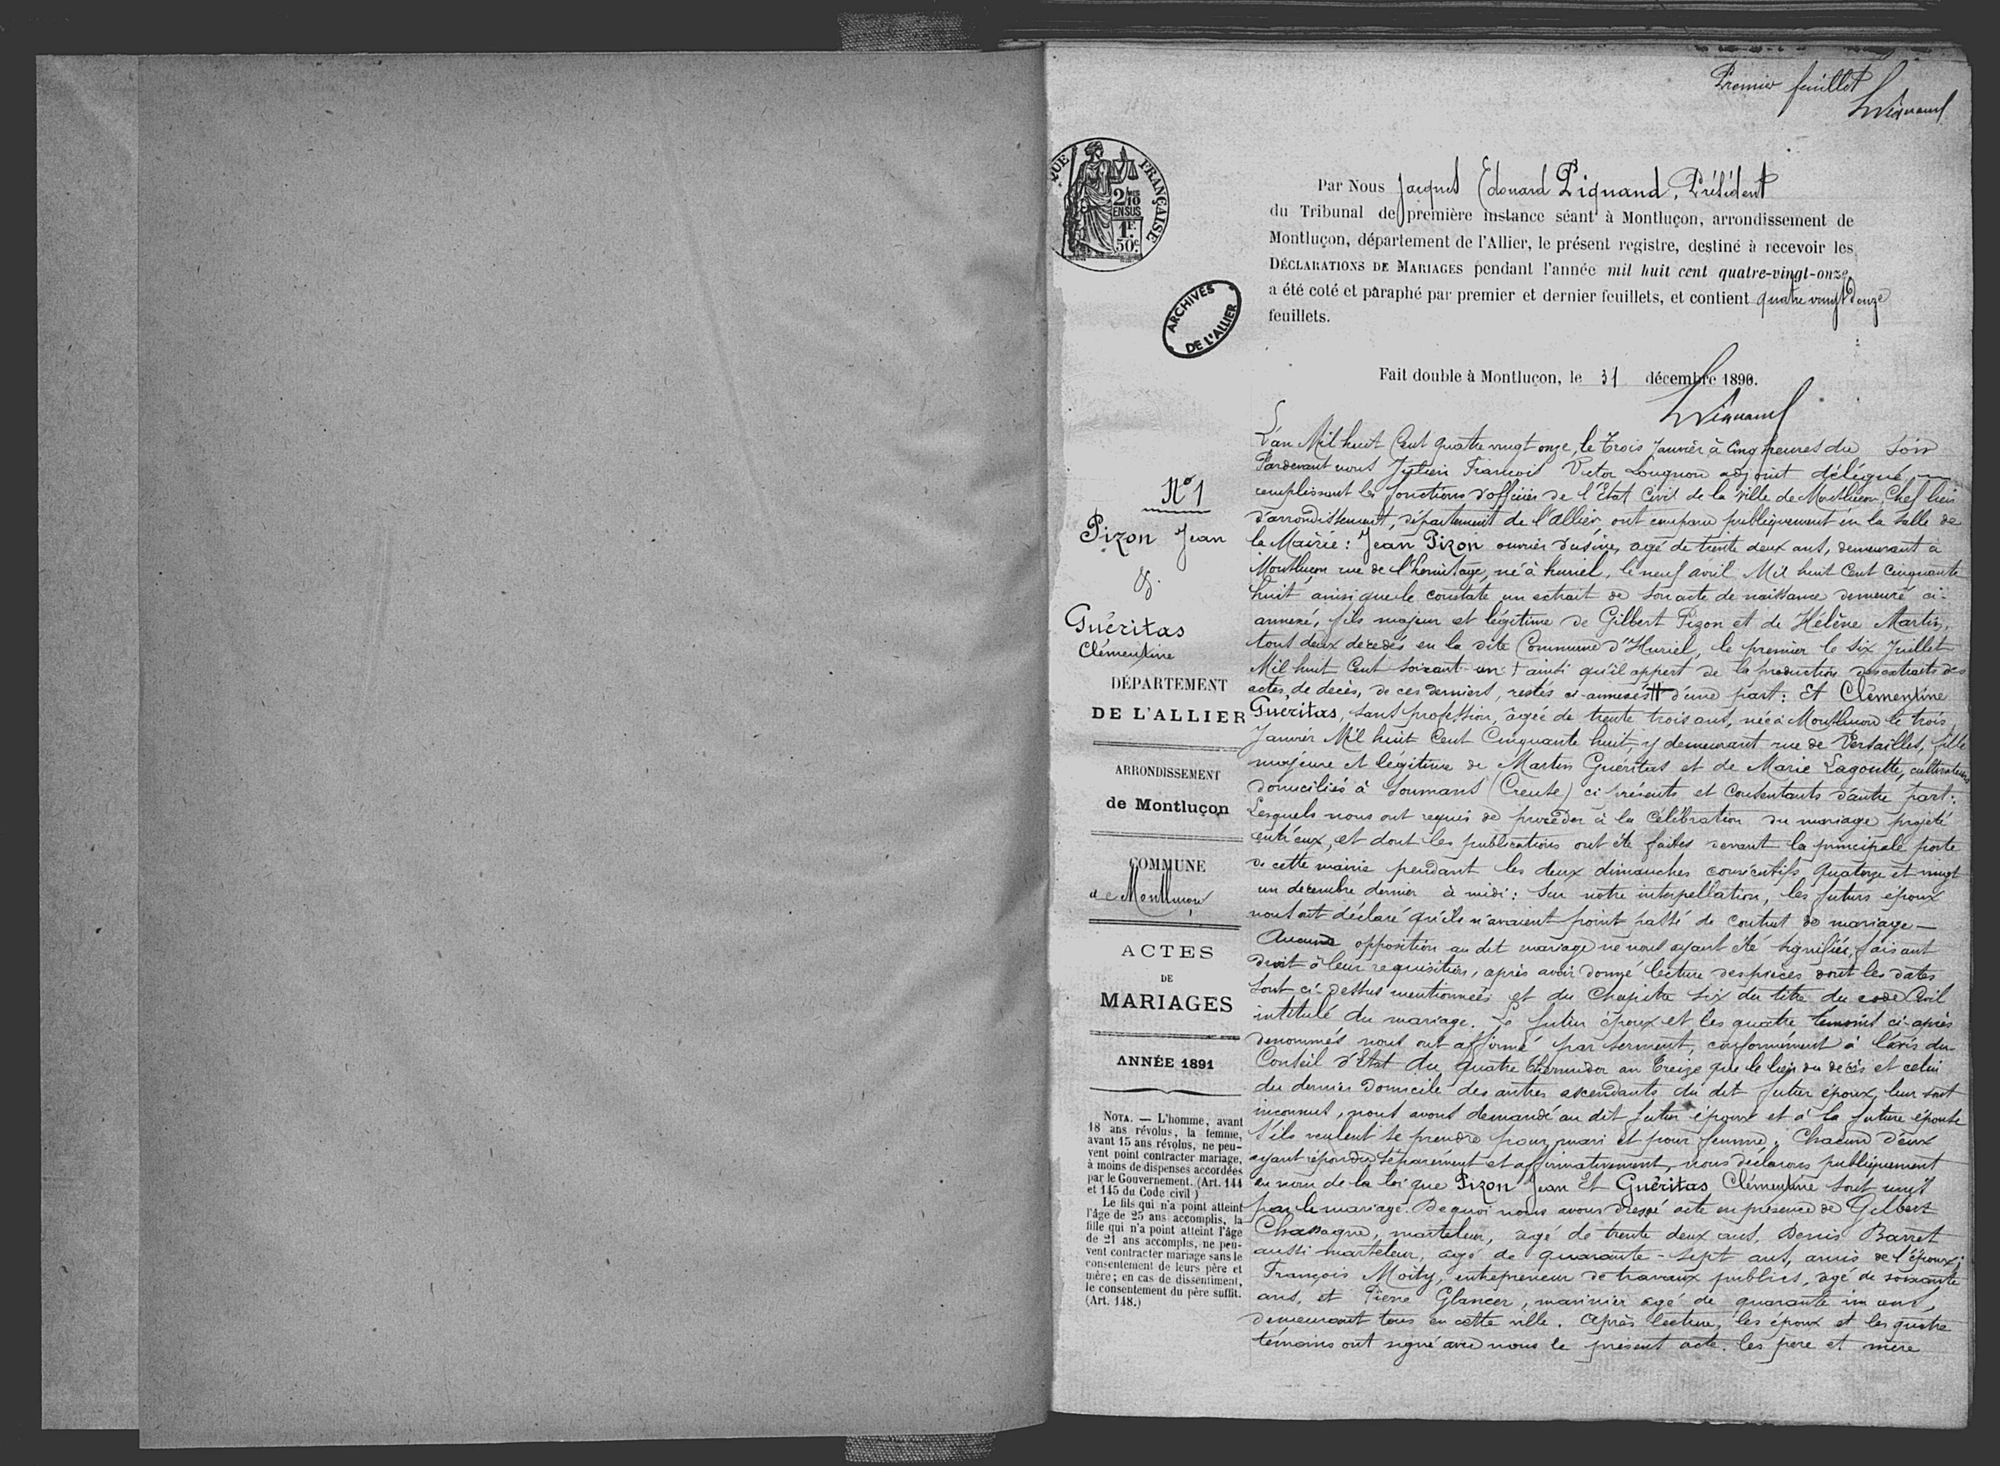 Premier feuillet
QUE FRANÇAISE
2/10
EN SUS
1F.
50c.
Par Nous Jacques Edouard Pignand, Président
du Tribunal de première instance séant à Montluçon, arrondissement de
Montluçon, département de l'Allier, le présent registre, destiné à recevoir les
DÉCLARATIONS DE MARIAGES pendant l'année mil huit cent quatre-vingt-onze,
a été coté et paraphé par premier et dernier feuillets, et contient quatre vingt douze
feuillets.
ARCHIVES
DE L'ALLIER
Fait double à Montluçon, le 31 décembre 1890.
N° 1
Pizon Jean
&.
Guéritas
Clémentine
DÉPARTEMENT
DE L'ALLIER
ARRONDISSEMENT
de Montluçon
COMMUNE
de Montluçon
ACTES
DE
MARIAGES
ANNÉE 1891
NOTA. — L'homme, avant
18 ans révolus, la femme,
avant 15 ans révolus, ne peu-
vent point contracter mariage,
à moins de dispenses accordées
par le Gouvernement. (Art. 144
et 145 du Code civil)
Le fils qui n'a point atteint
l'âge de 25 ans accomplis, la
fille qui n'a point atteint l'âge
de 21 ans accomplis, ne peu-
vent contracter mariage sans le
consentement de leurs père et
mère; en cas de dissentiment,
le consentement du père suffit.
(Art. 148.)
L'an Mil huit Cent quatre vingt onze, le Trois Janvier à Cinq heures du Soir
Pardevant nous Julien François Victor Lougnon adjoint délégué
remplissant les fonctions d'officier de l'Etat Civil de la Ville de Montluçon, Chef lieu
d'arrondissement, département de l'allier, ont comparu publiquement en la salle de
la Mairie: Jean Pizon ouvrier d'usine, agé de trente deux ans, demeurant à
Montluçon rue de l'hermitage, né à huriel, le neuf avril Mil huit Cent Cinquante
huit ainsi que le constate un extrait de son acte de naissance demeuré ci-
annexé, fils majeur et légitime de Gilbert Pizon et de Hélène Martin,
tous deux décédés en la dite Commune d'Huriel, le premier le six Juillet
Mil huit Cent soixante-un + ainsi qu'il appert de la production des extraits des
actes de décès, de ces derniers, restés ci-annexés d'une part: Et Clémentine
Guéritas, sans profession, âgée de trente trois ans, née à Montluçon le trois
Janvier Mil huit Cent Cinquante huit, y demeurant rue de Versailles, fille
majeure et légitime de Martin Guéritas et de Marie Lagoutte, cultivateurs
domiciliés à Soumans (Creuse) ci présents et Consentants d'autre part:
Lesquels nous ont requis de procéder à la Célébration du mariage projeté
entr'eux, et dont les publications ont été faites devant la principale porte
de cette mairie pendant les deux dimanches consécutifs quatorze et vingt
un décembre dernier à midi: Sur notre interpellation, les futurs époux
nous ont déclaré qu'ils n'avaient point passé de contrat de mariage —
Aucune opposition au dit mariage ne nous ayant été signifiée, faisant
droit à leur requisition, après avoir donné lecture des pièces dont les dates
sont ci-dessus mentionnées et du Chapitre six du titre du code Civil
intitulé du mariage. Le futur époux et les quatre témoins ci-après
dénommés nous ont affirmé par serment, conformément à l'avis du
Conseil d'Etat du quatre Thermidor an Treize que le lieu du décès et celui
du dernier domicile des autres ascendants du dit futur époux, leur sont
inconnus, nous avons demandé au dit futur époux et à la future épouse
s'ils veulent se prendre pour mari et pour femme: Chacun d'eux
ayant répondu séparément et affirmativement, nous déclarons publiquement
au nom de la loi que Pizon Jean Et Guéritas Clémentine sont unis
par le mariage. De quoi nous avons dressé acte en présence de Gilbert
Chassagne, marteleur, agé de trente deux ans, Denis Barret
aussi marteleur, agé de quarante-sept ans, amis de l'époux;
François Moity, entrepreneur de travaux publics, agé de soixante
ans, et Pierre Glancer, marinier agé de quarante un ans,
demeurant tous en cette ville. Après lecture, les époux et les quatre
témoins ont signé avec nous le présent acte. Les père et mère